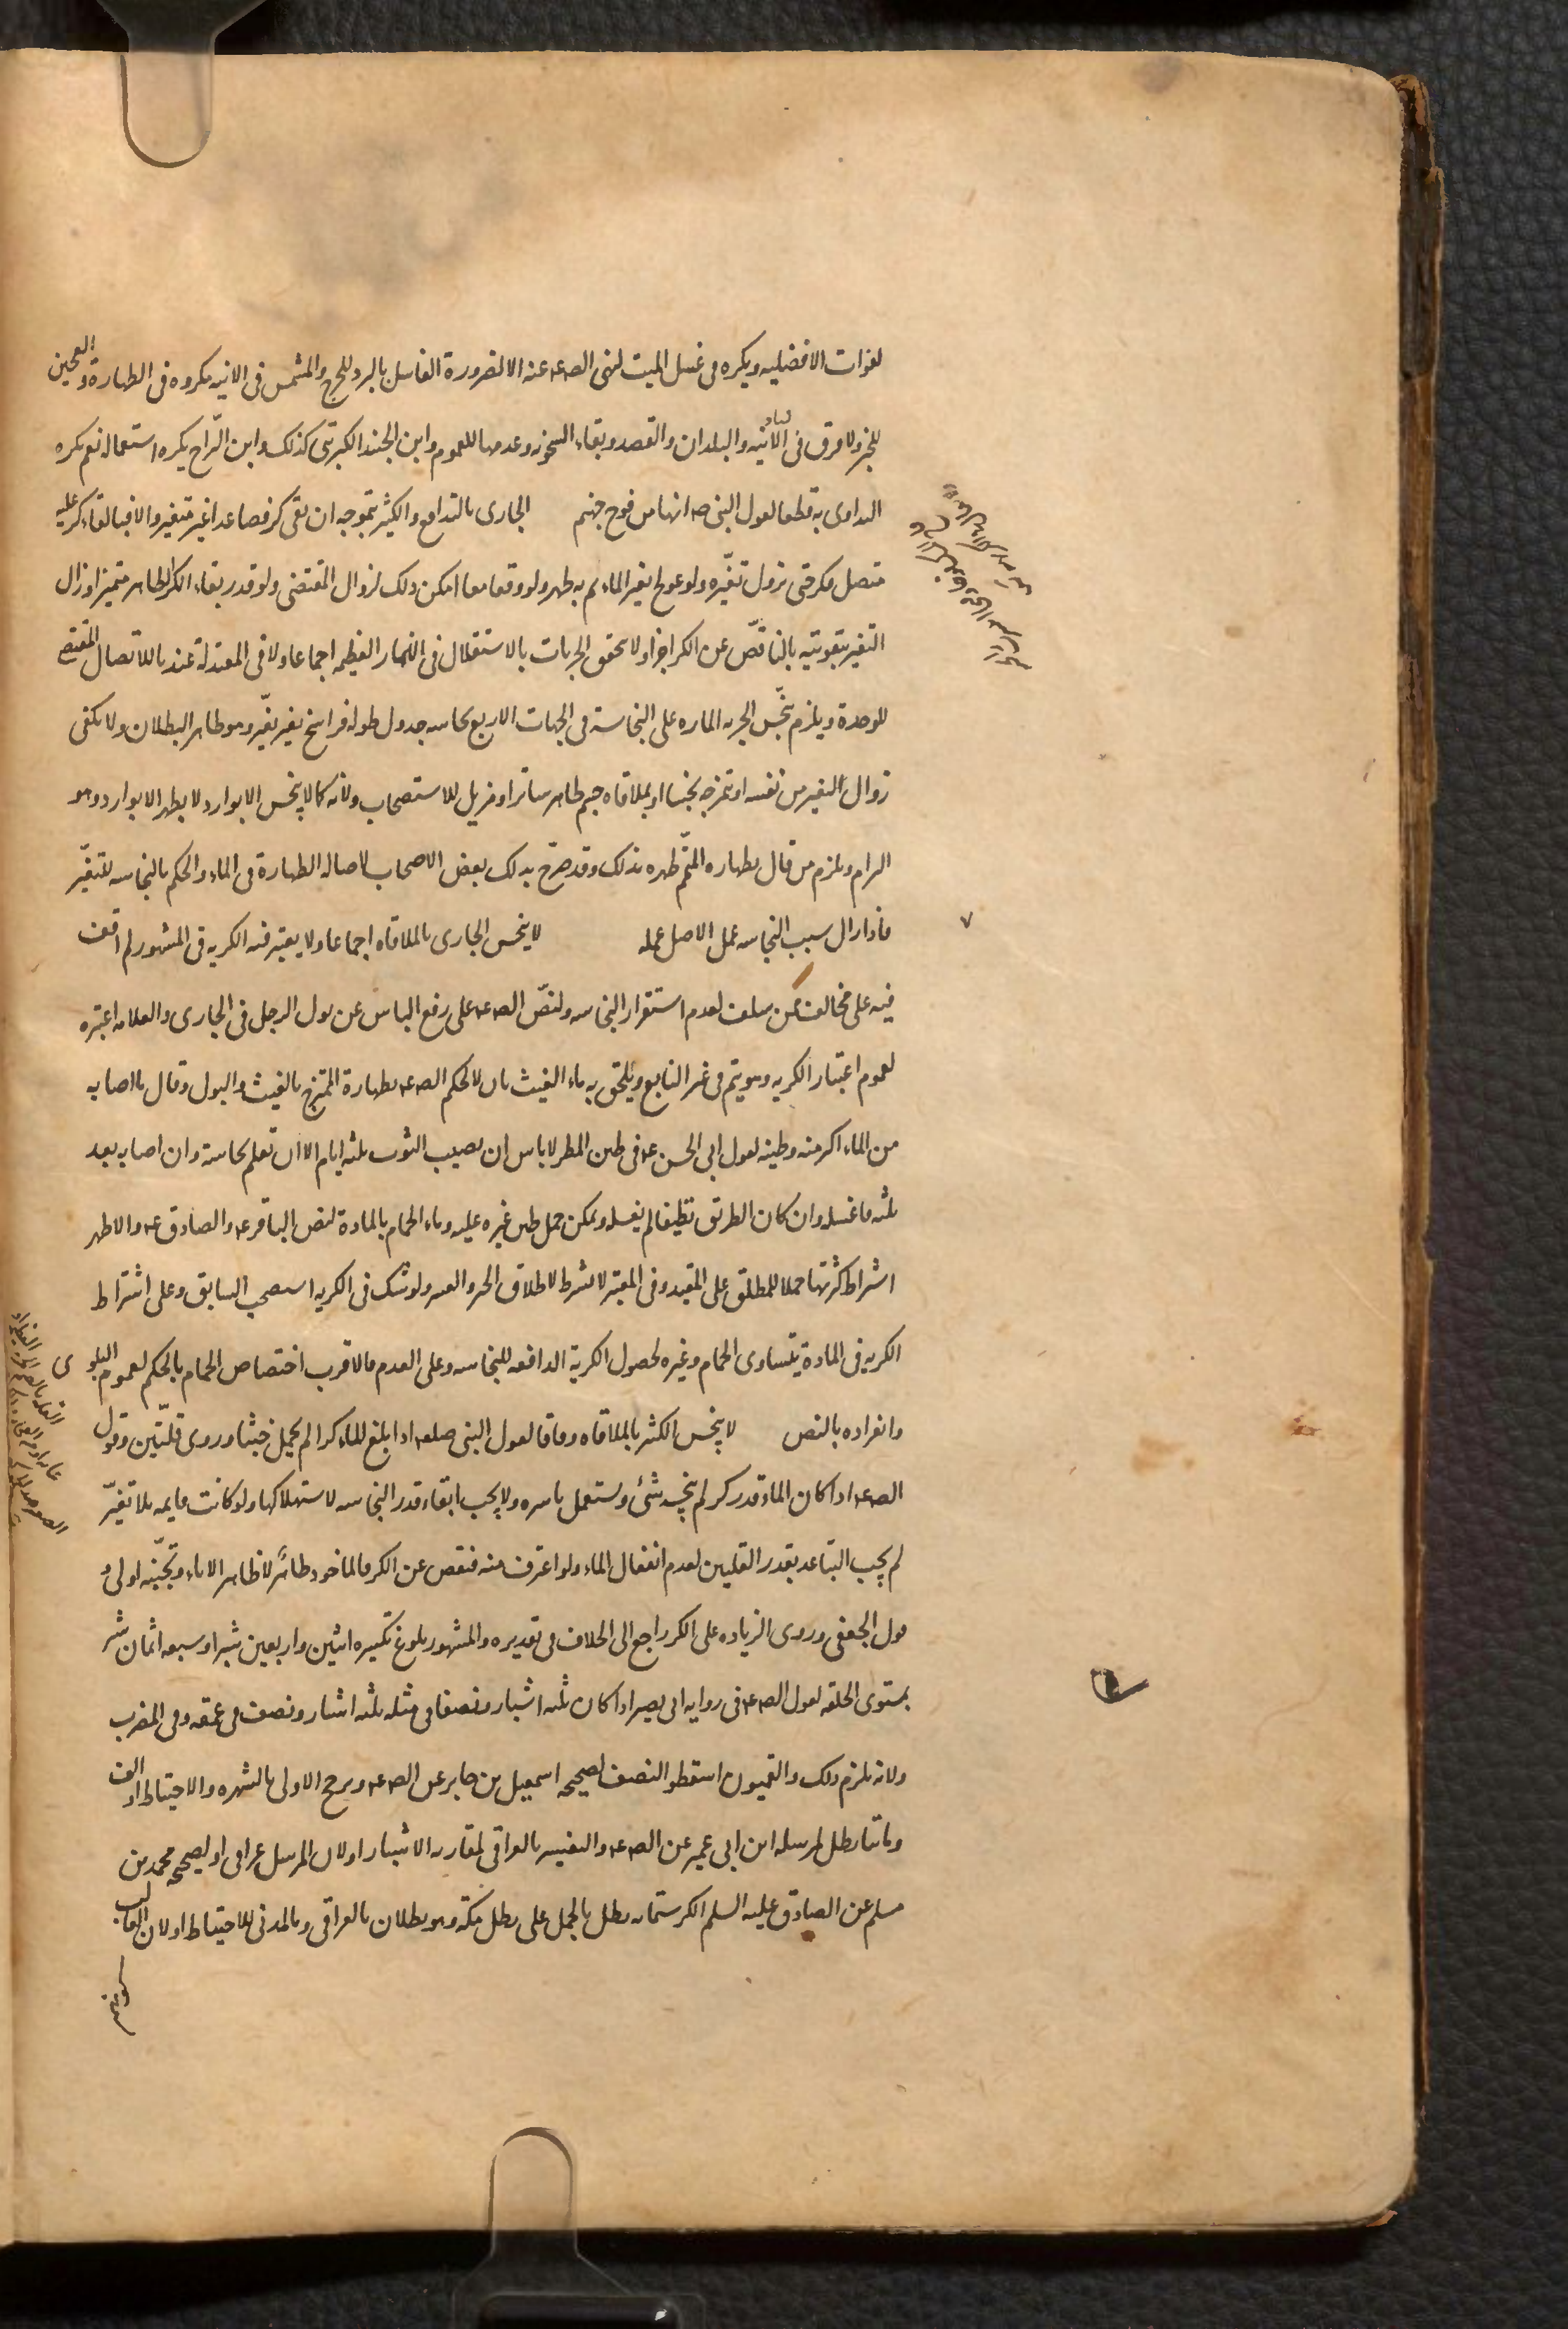 لفوات الافضليه ويكره فى غسل الميت لنهى الصـ عـ عنه الا لضرورة الغاسل بالبرد للحرج والمشمس فى الانيه مكروه فى الطهارة والعجين
للخبر ولا فرق فى الآنيه والبلدان والقصد وبقاء السخونه وعدمها للعموم وابن الجنيد الكبريتى كذلك وابن البراج يكره استعماله نعم يكره
التداوى به قطعا لقول النبى ص انها من فوح جهنم الجارى بالتدافع والكثير بتموجه ان بقى كر فصاعدا غير متغير والا فبالقاء كر عليه
متصل فكر حتى يزول تغيّره ولو عولج بغير الماء ثم به طهر ولو وقعا معا امكن ذلك لزوال المقتضى ولو قدر بقاء الكر الطاهر متميزا وزال
التغير بتقويته بالناقص عن الكر اجزا ولا تحقق الجريات بالاستقلال فى الانهار العظيمه اجماعا ولا فى المعتدلة عندنا للاتصال المقتضى
للوحدة ويلزم تنجّس الجريه الماره على النجاسة فى الجهات الاربع نجاسه جدول طوله فراسخ بغير تغيّر وهو ظاهر البطلان ولا يكفى
زوال التغير من نفسه او بمزجه بنجس او بملاقاه جسم طاهر ساترا او مزيل للاستصحاب ولانه كما لا ينجس الا بوارد لا يطهر الا بوارد وهو
الزام ويلزم من قال بطهاره المتمّم طهره بذلك وقد صرّح بذلك بعض الاصحاب لاصاله الطهارة فى الماء والحكم بالنجاسه للتغيّر
فاذا زال سبب النجاسه عمل الاصل عمله لا ينجس الجارى بالملاقاه اجماعا ولا يعتبر فيه الكريه فى المشهور لم اقف
فيه على مخالف ممن سلف لعدم استقرار النجاسه ولنصّ الصـ عـ على رفع الباس عن بول الرجل فى الجارى والعلامه اعتبره
لعموم اعتبار الكريه وهو يتم فى غير النابع ويلحق به ماء الغيث نازلا لحكم الصـ عـ بطهارة الممتزج بالغيث والبول وقال ما اصابه
من الماء اكثر منه وطينه لقول ابى الحسن عـ فى طين المطر لا باس ان يصيب الثوب ثلثه ايام الا ان تعلم نجاسته وان اصابه بعد
ثلثه فاغسله وان كان الطريق نظيفا لم يغسله ويمكن حمل طين غيره عليه وماء الحمام بالمادة لنص الباقر عـ والصادق عـ والاظهر
اشتراط كثرتها حملا للمطلق على المقيد وفى المعتبر لا يشترط لاطلاق الخبر والعسر ولو شك فى الكريه استصحب السابق وعلى اشتراط
الكريه فى المادة يتساوى الحمام وغيره لحصول الكرية الدافعه للنجاسه وعلى العدم فالاقرب اختصاص الحمام بالحكم لعموم البلوى
وانفراده بالنص لا ينجس الكثير بالملاقاه وفاقا لقول النبى صلعم اذا بلغ الماء كرا لم يحمل خبثا وروى قلّتين وقول
الصـ عـ اذا كان الماء قدر كر لم ينجسه شئ ويستعمل باسره ولا يجب ابقاء قدر النجاسه لاستهلاكها ولو كانت قايمه بلا تغيّر
لم يجب التباعد بقدر القلتين لعدم انفعال الماء ولو اغترف منه فنقص عن الكر فالماخوذ طاهر لا ظاهر الاناء وتجنّبه اولى و
قول الجعفى وروى الزياده على الكر راجع الى الخلاف فى تقديره والمشهور بلوغ تكسيره اثنين واربعين شبرا وسبعه اثمان شبر
بمستوى الخلقه لقول الصـ عـ فى روايه ابى بصير اذا كان ثلثه اشبار ونصفا فى مثله ثلثه اشبار ونصف فى عمقه وفى الضرب
ولانه يلزم ذلك والقميون اسقطوا النصف لصحيحه اسمعيل بن جابر عن الصـ عـ ويرجح الاولى بالشهره والاحتياط او الف
ومائتا رطل لمرسله ابن ابى عمير عن الصـ عـ والتفسير بالعراقى لمقاربه الاشبار او لان المرسل عراقى او لصحيحه محمد بن
مسلم عن الصادق عليه السلم الكر ستمائه رطل بالحمل على رطل مكة وهو رطلان بالعراقى وبالمدنى للاحتياط او لان الغالب